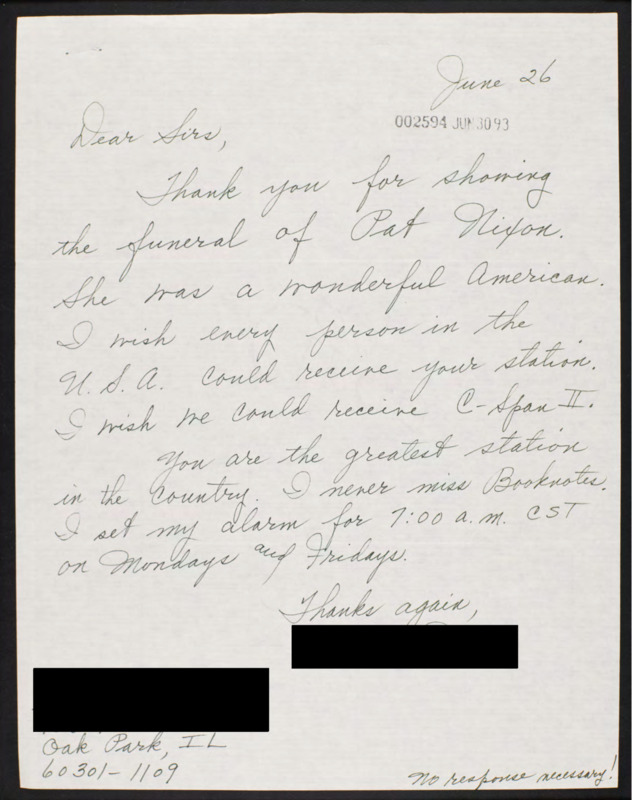 June 26
002594 JUN 30 93
Dear Sirs,
Thank you for showing
the funeral of Pat Nixon.
She was a wonderful American.
I wish every person in the
U.S.A. could receive your station.
I wish we could receive C-Span II.
You are the greatest station
in the country. I never miss Booknotes.
I set my alarm for 7:00 a.m. CST
on Mondays and Fridays.
Thanks again,
Oak Park, IL
60301-1109
No response necessary!